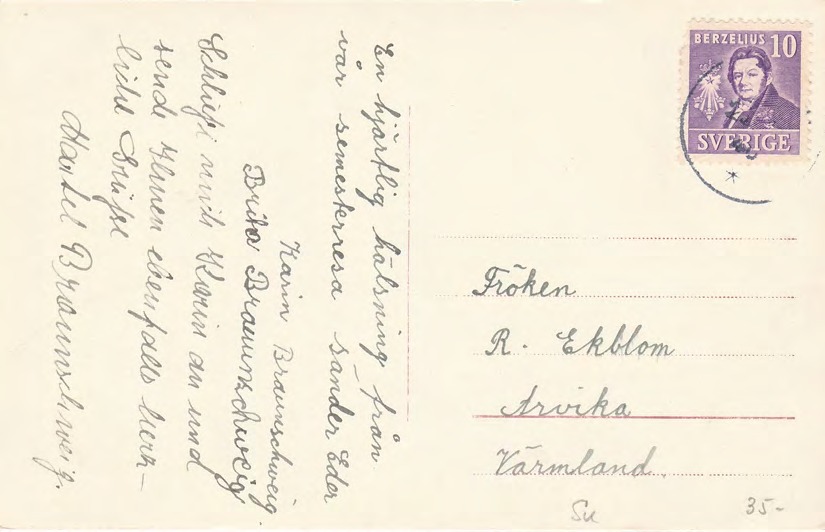 En hjärtlig hälsning från
vår semesterresa sänder Eder
Karin Braunschweig
Brita Braunschweig
mich Karin an und
sende Ihnen ebenfalls herz-
liche Grüße
Braunschweig.
BERZELIUS 10
SVERIGE
Fröken
R. Ekblom
Arvika
Värmland.
Su 35-